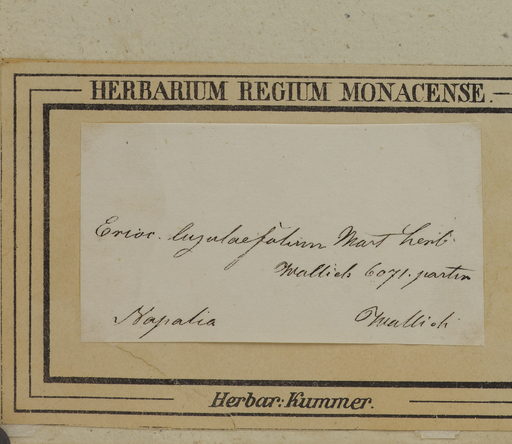 HERBARIUM REGIUM MONACENSE.
Erioc. luzulaefolium Mart herb.
Wallich 6071. partim
Napalia Wallich
Herbar: Kummer.